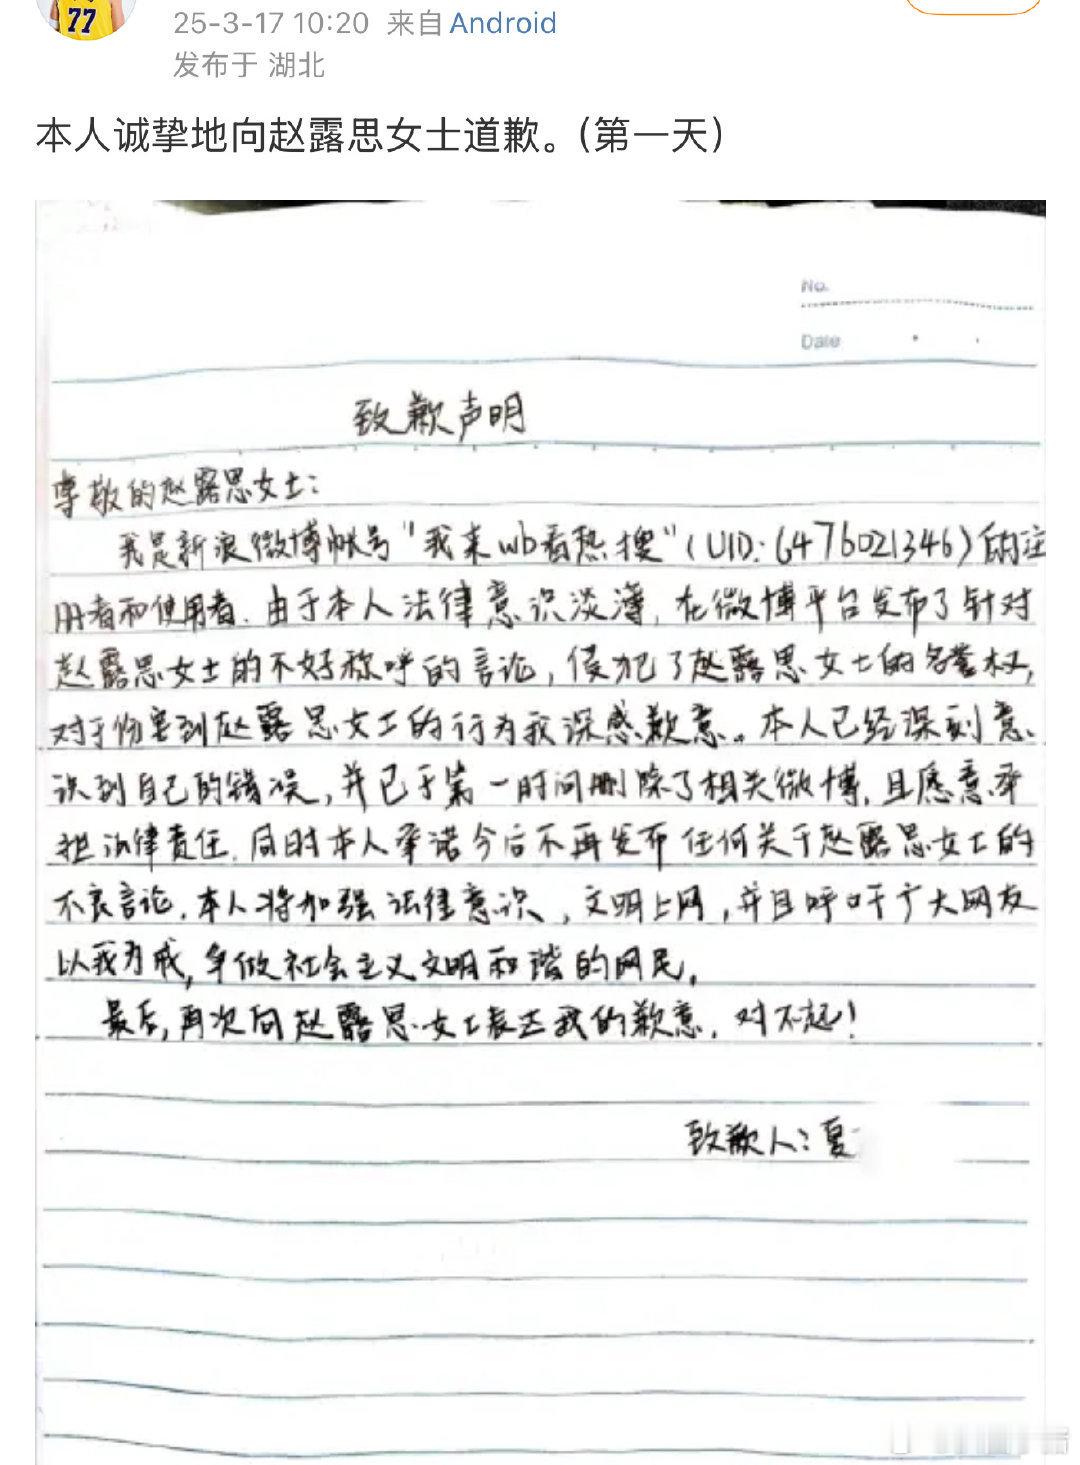 77
25-3-17 10:20 来自 Android
发布于 湖北
本人诚挚地向赵露思女士道歉。(第一天)
No.
Date
致歉声明
尊敬的赵露思女士:
我是新浪微博帐号“我来wb看热搜”(UID:6476021346)的注
册者和使用者.由于本人法律意识淡薄,在微博平台发布了针对
赵露思女士的不好称呼的言论,侵犯了赵露思女士的名誉权,
对于伤害到赵露思女士的行为我深感歉意。本人已经深刻意
识到自己的错误,并已于第一时间删除了相关微博,且愿意承
担法律责任.同时本人承诺今后不再发布任何关于赵露思女士的
不良言论.本人将加强法律意识,文明上网,并且呼吁广大网友
以我为戒,争做社会主义文明和谐的网民.
最后,再次向赵露思女士表达我的歉意.对不起!
致歉人:夏